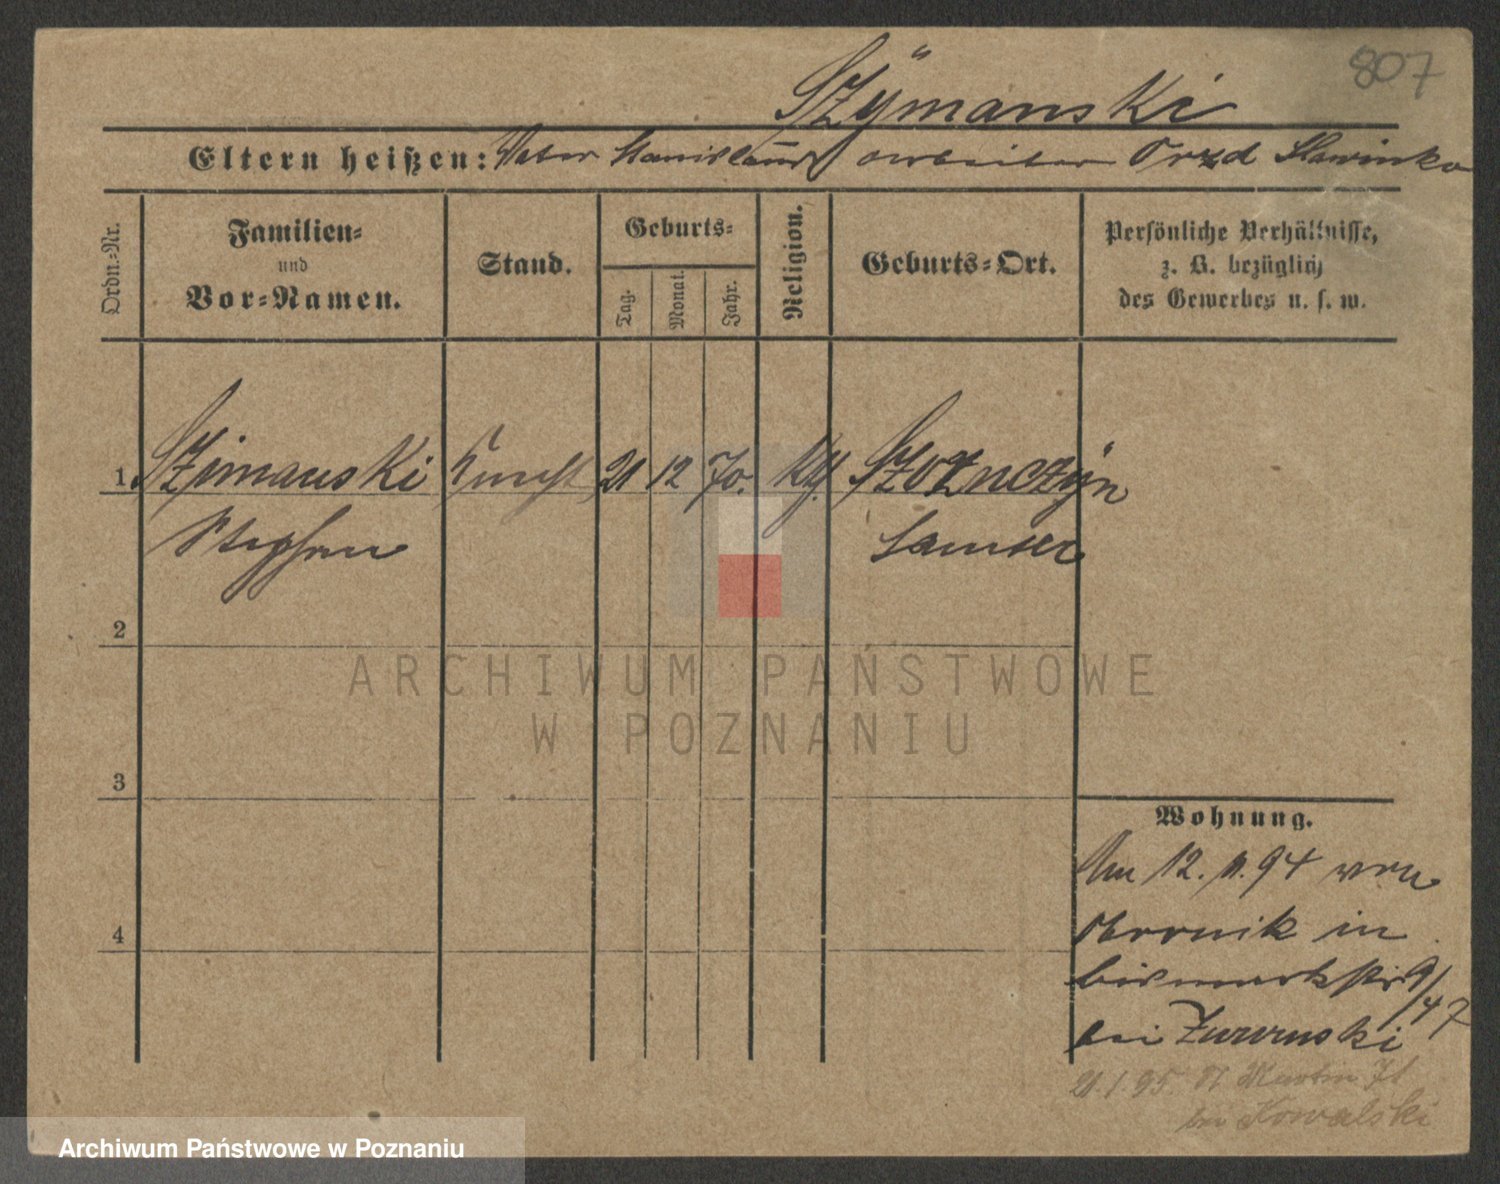 807
Szÿmanski
Eltern heißen: Vater Stanislaus arbeiter Slawinko
Ordn.-Nr.
Familien-
und
Vor-Namen.
Stand.
Geburts-
Tag.
Monat.
Jahr.
Religion.
Geburts-Ort.
Persönliche Verhältnisse,
z. B. bezüglich
des Gewerbes u. s. w.
1 Szimanski Knecht 21 12 70. kth.
Stephan Samter
2
3
4
Wohnung.
Am 12. 11. 94 von
Obornik in
bismarkstr 9/47
bei
21.1.95. St Martin 71
bei Kowalski
ARCHIWUM PAŃSTWOWE
W POZNANIU
Archiwum Państwowe w Poznaniu